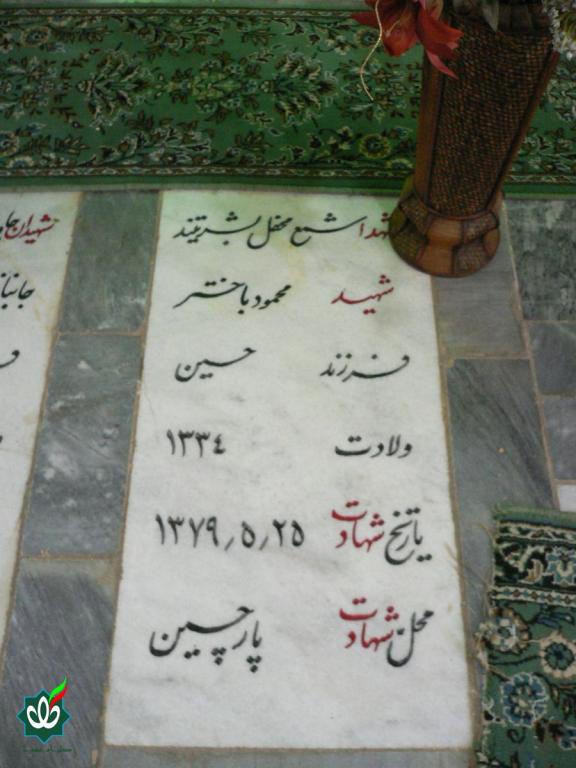 شهدا شمع محفل بشریتند
شهید محمود باختر
فرزند حسین
ولادت ۱۳۳۴
تاریخ شهادت ۱۳۷۹٫۵٫۲۵
محل شهادت پارچین
شهیدان